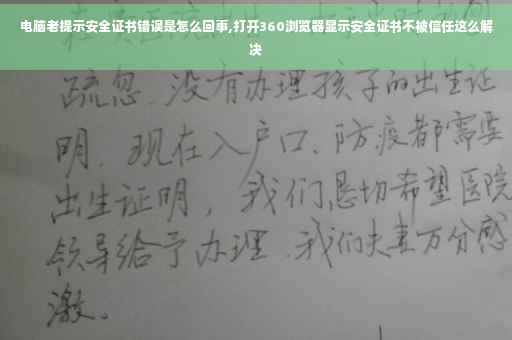 电脑老提示安全证书错误是怎么回事,打开360浏览器显示安全证书不被信任这么解
决
疏忽、没有办理孩子的出生证
明、现在入户口、防疫都需要
出生证明，我们恳切希望医院
领导给予办理、我们夫妻万分感
激。